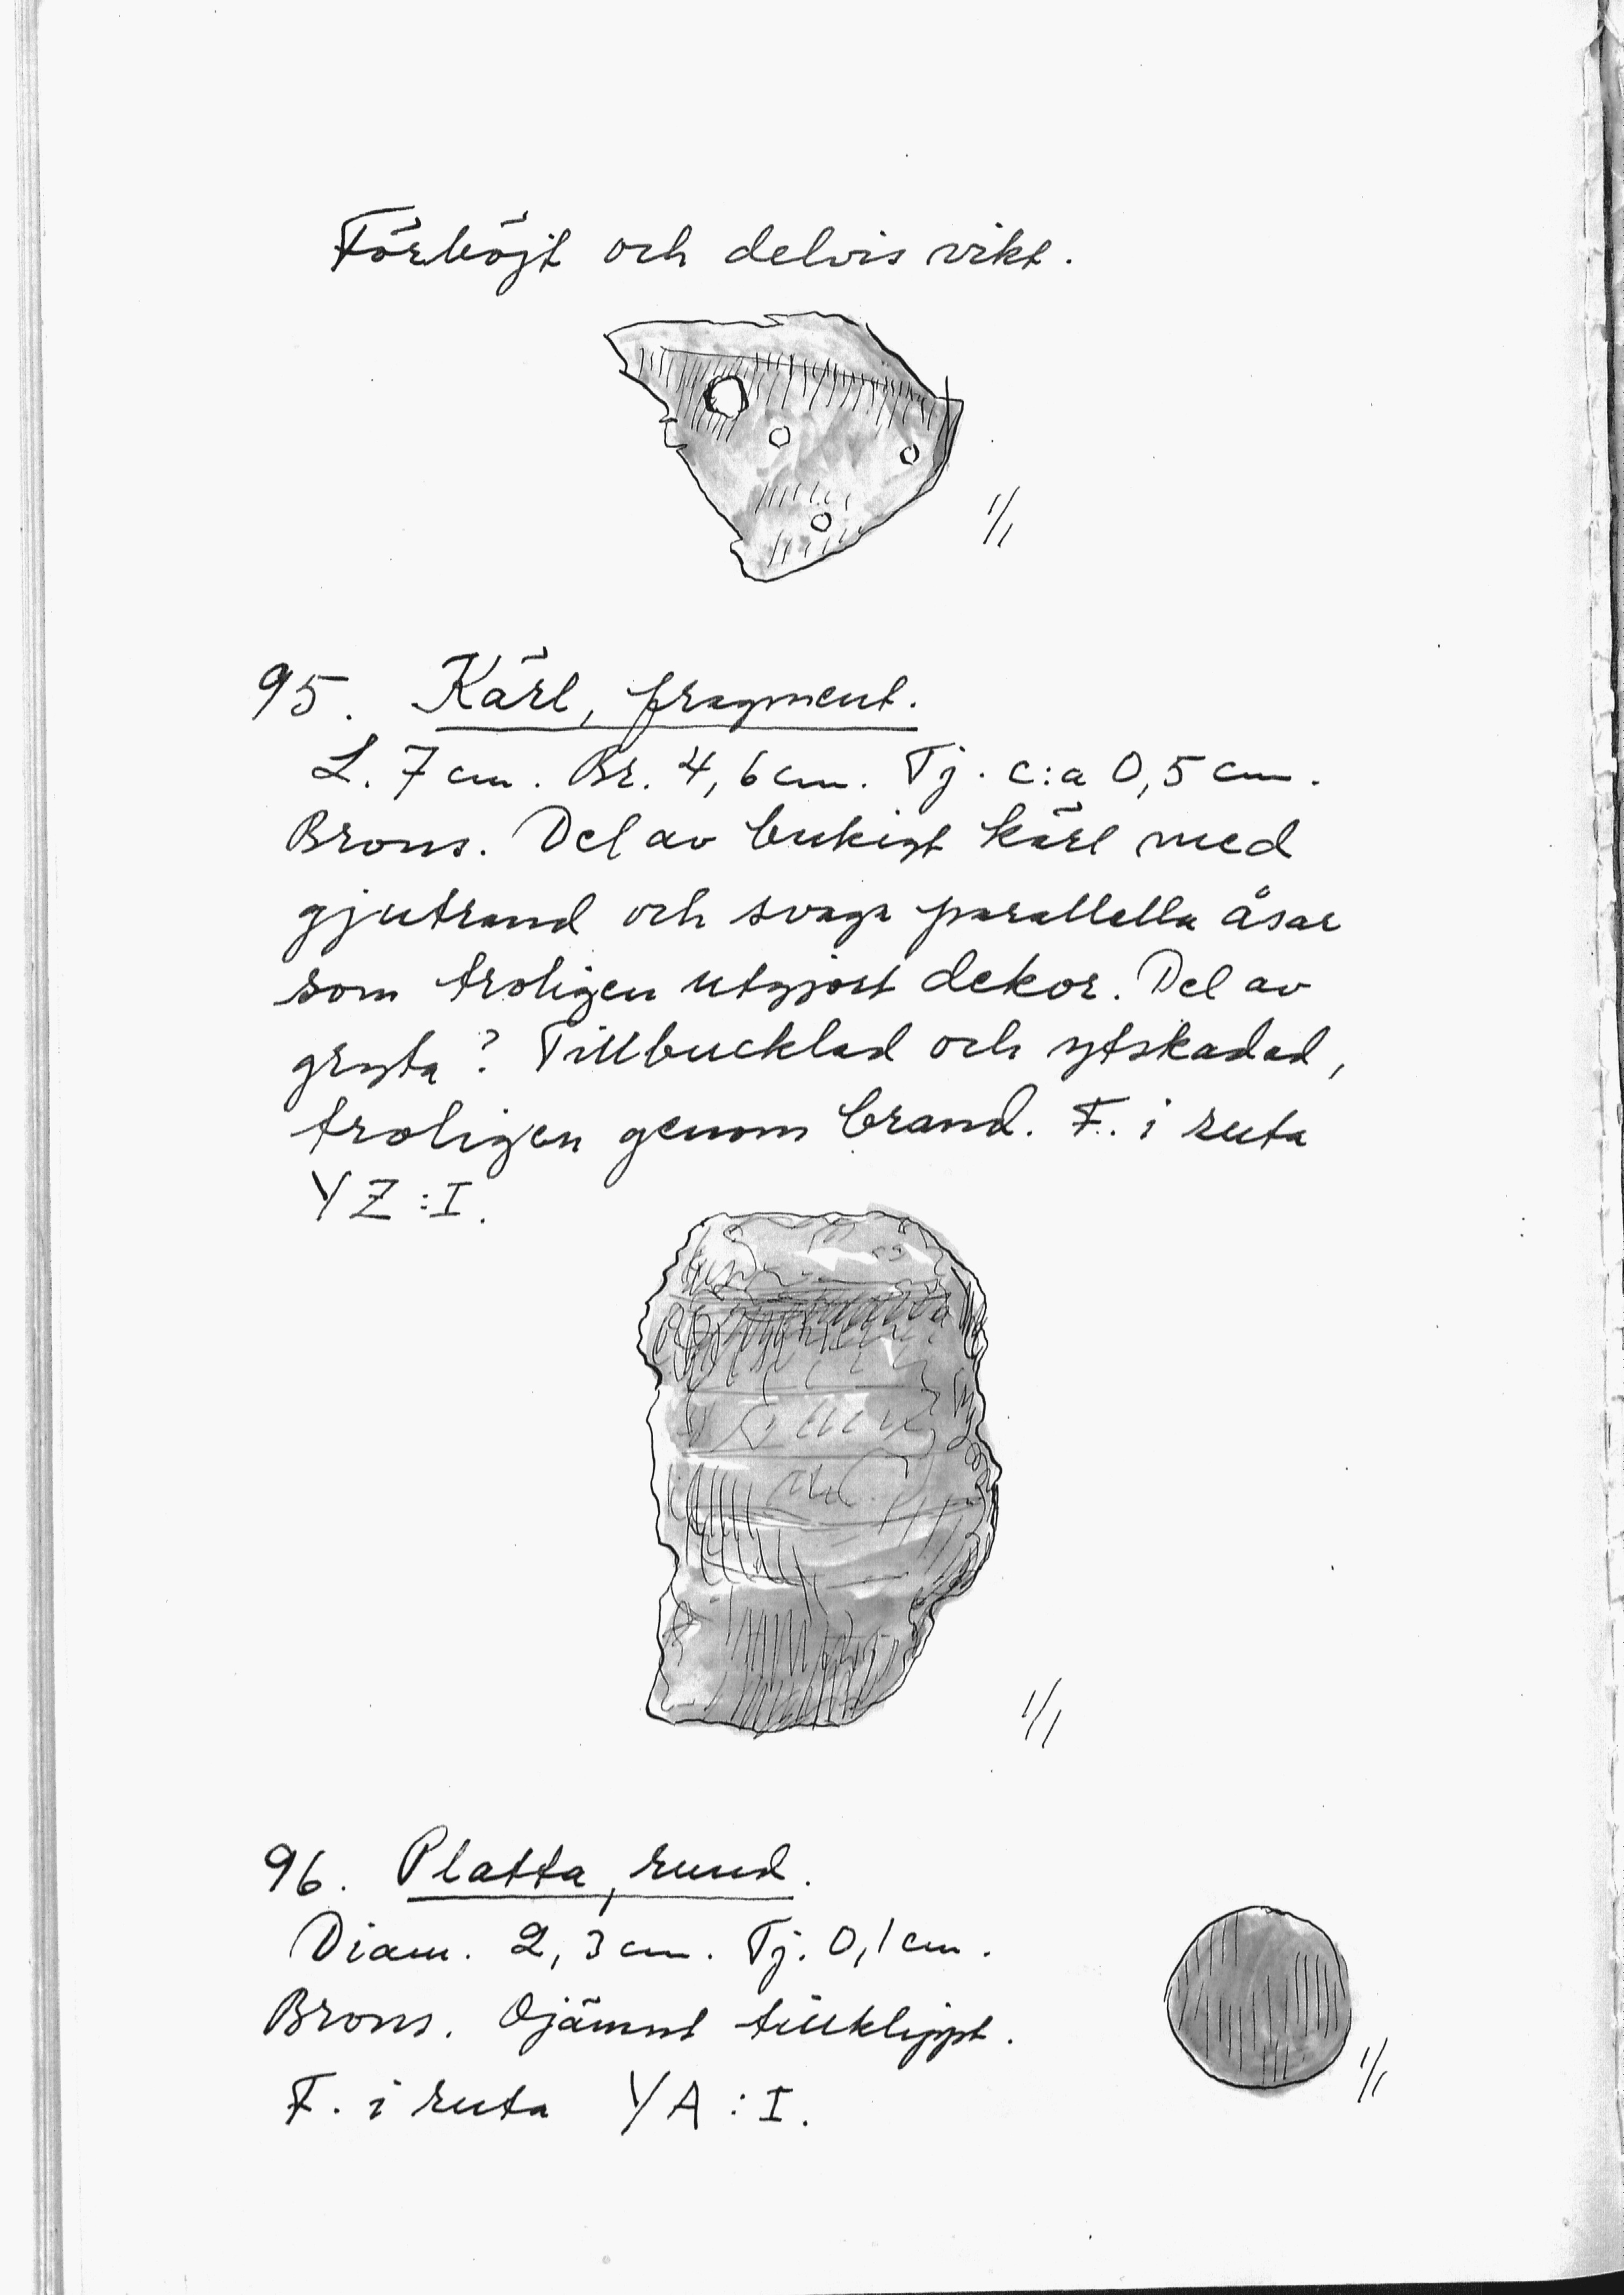 Förböjt och delvis vikt.
1/1
95. Kärl, fragment.
L. 7 cm. Br. 4,6 cm. Tj. c:a 0,5 cm.
Brons. Del av bukigt kärl med
gjutrand och svaga parallella åsar
som troligen utgjort dekor. Del av
gryta? Tillbucklad och ytskadad,
troligen genom brand. F. i ruta
YZ:I.
1/1
96. Platta, rund.
Diam. 2,3 cm. Tj. 0,1 cm.
Brons. Ojämnt tillklippt.
F. i ruta YA:I.
1/1